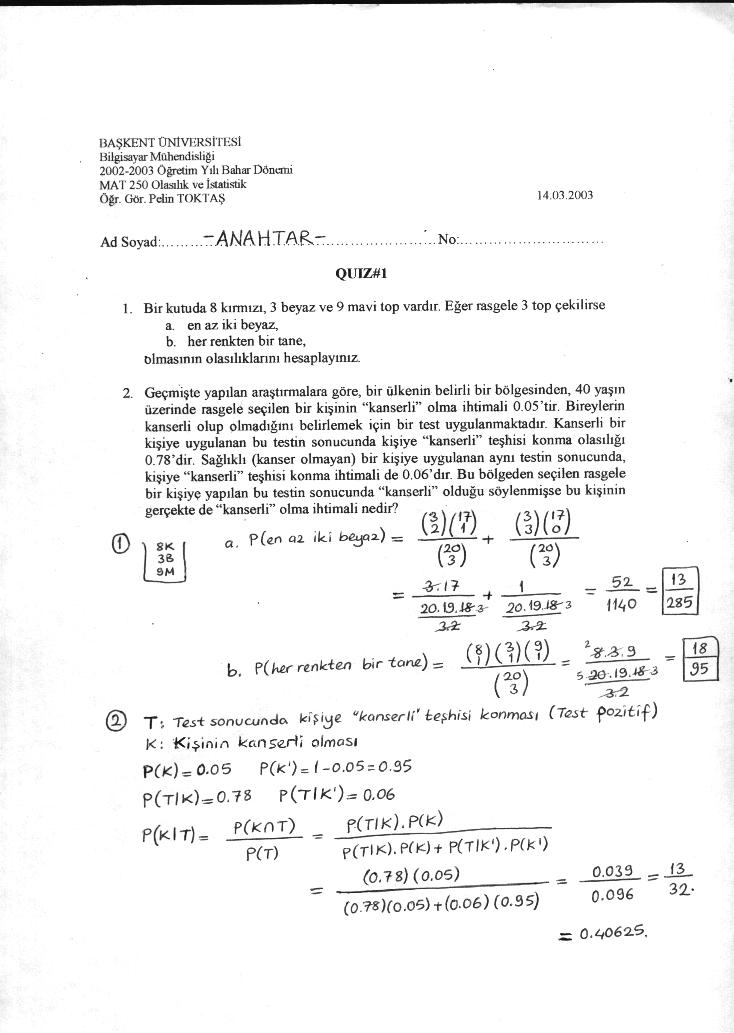 BAŞKENT ÜNİVERSİTESİ
Bilgisayar Mühendisliği
2002-2003 Öğretim Yılı Bahar Dönemi
MAT 250 Olasılık ve İstatistik
Öğr. Gör. Pelin TOKTAŞ 14.03.2003
Ad Soyad:.........-ANAHTAR-........................No:..............................
QUIZ#1
1. Bir kutuda 8 kırmızı, 3 beyaz ve 9 mavi top vardır. Eğer rasgele 3 top çekilirse
a. en az iki beyaz,
b. her renkten bir tane,
olmasının olasılıklarını hesaplayınız.
2. Geçmişte yapılan araştırmalara göre, bir ülkenin belirli bir bölgesinden, 40 yaşın
üzerinde rasgele seçilen bir kişinin “kanserli” olma ihtimali 0.05’tir. Bireylerin
kanserli olup olmadığını belirlemek için bir test uygulanmaktadır. Kanserli bir
kişiye uygulanan bu testin sonucunda kişiye “kanserli” teşhisi konma olasılığı
0.78’dir. Sağlıklı (kanser olmayan) bir kişiye uygulanan aynı testin sonucunda,
kişiye “kanserli” teşhisi konma ihtimali de 0.06’dır. Bu bölgeden seçilen rasgele
bir kişiye yapılan bu testin sonucunda “kanserli” olduğu söylenmişse bu kişinin
gerçekte de “kanserli” olma ihtimali nedir?
① 8K 3B 9M a. P(en az iki beyaz) = (3 2)(17 1) / (20 3) + (3 3)(17 0) / (20 3)
= 3.17 / (20.19.18 3 / 3.2) + 1 / (20.19.18 3 / 3.2) = 52 / 1140 = 13 / 285
b. P(her renkten bir tane) = (8 1)(3 1)(9 1) / (20 3) = 2 8.3.9 / (5 20.19.18 3 / 3.2) = 18 / 95
② T: Test sonucunda kişiye "kanserli" teşhisi konması (Test pozitif)
K: Kişinin kanserli olması
P(K) = 0.05 P(K') = 1-0.05 = 0.95
P(T|K) = 0.78 P(T|K') = 0.06
P(K|T) = P(K∩T) / P(T) = P(T|K).P(K) / P(T|K).P(K) + P(T|K').P(K')
= (0.78)(0.05) / (0.78)(0.05)+(0.06)(0.95) = 0.039 / 0.096 = 13 / 32.
= 0.40625.